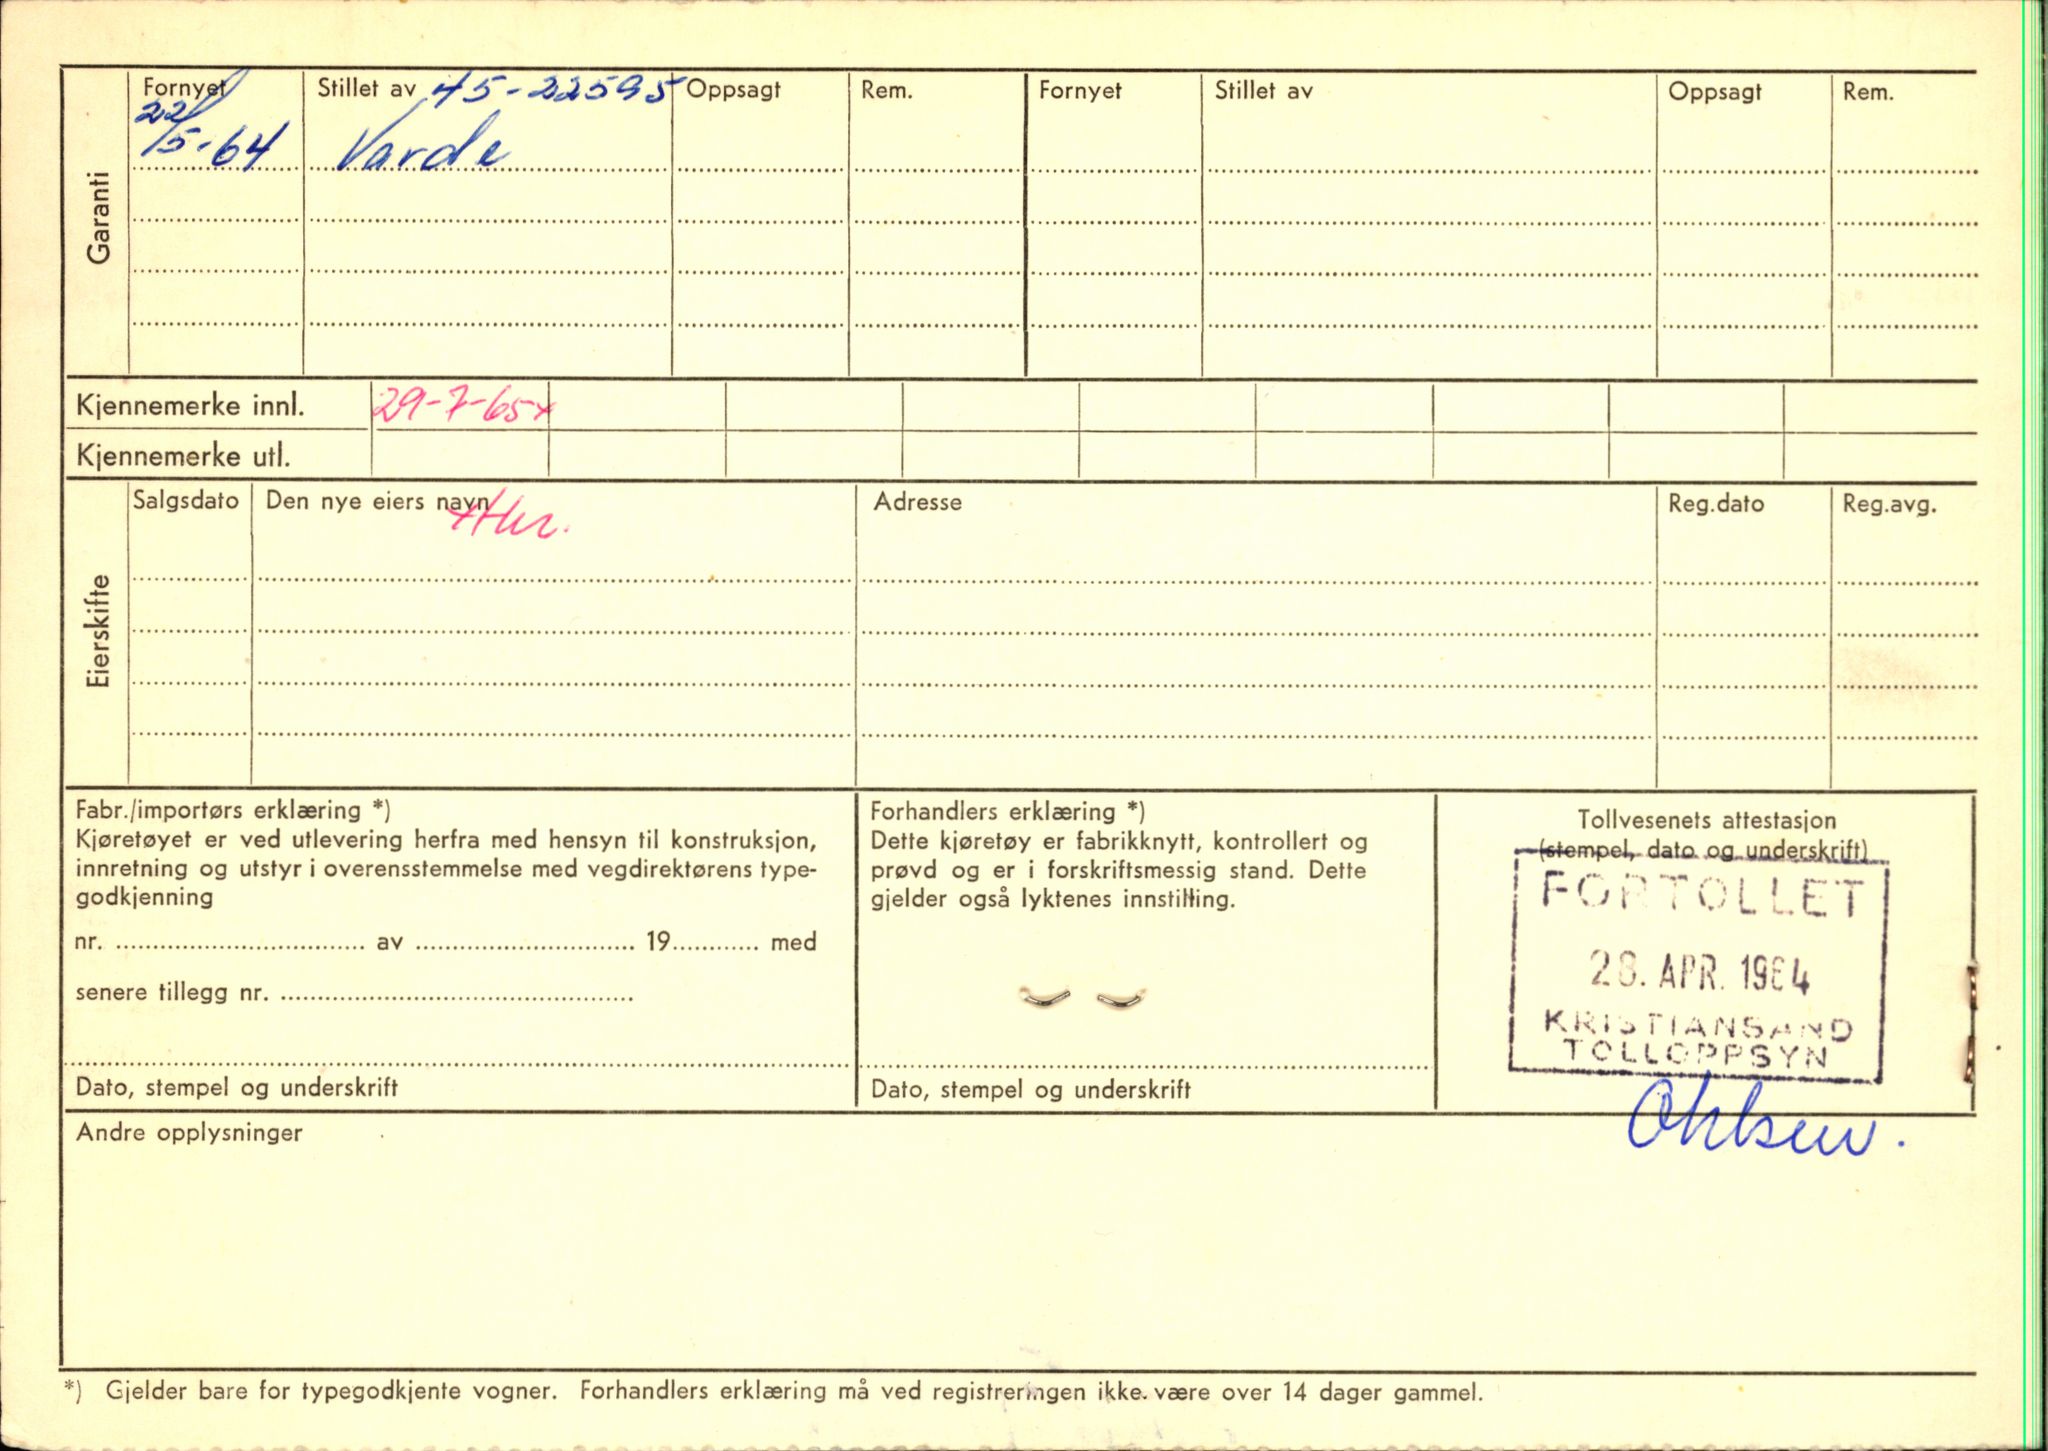 Garanti
Fornyet Stillet av 45-22595 Oppsagt Rem. Fornyet Stillet av Oppsagt Rem.
22/5-64 Varde
Kjennemerke innl. 29-7-65
Kjennemerke utl.
Eierskifte
Salgsdato Den nye eiers navn Adresse Reg.dato Reg.avg.
Fabr./importørs erklæring *)
Kjøretøyet er ved utlevering herfra med hensyn til konstruksjon,
innretning og utstyr i overensstemmelse med vegdirektørens type-
godkjenning
nr. .................................. av .............................. 19............ med
senere tillegg nr. ................................................
Dato, stempel og underskrift
Forhandlers erklæring *)
Dette kjøretøy er fabrikknytt, kontrollert og
prøvd og er i forskriftsmessig stand. Dette
gjelder også lyktenes innstilling.
Dato, stempel og underskrift
Tollvesenets attestasjon
(stempel, dato og underskrift)
FORTOLLET
28. APR. 1964
KRISTIANSAND
TOLLOPPSYN
Ohlsen.
Andre opplysninger
*) Gjelder bare for typegodkjente vogner. Forhandlers erklæring må ved registreringen ikke være over 14 dager gammel.